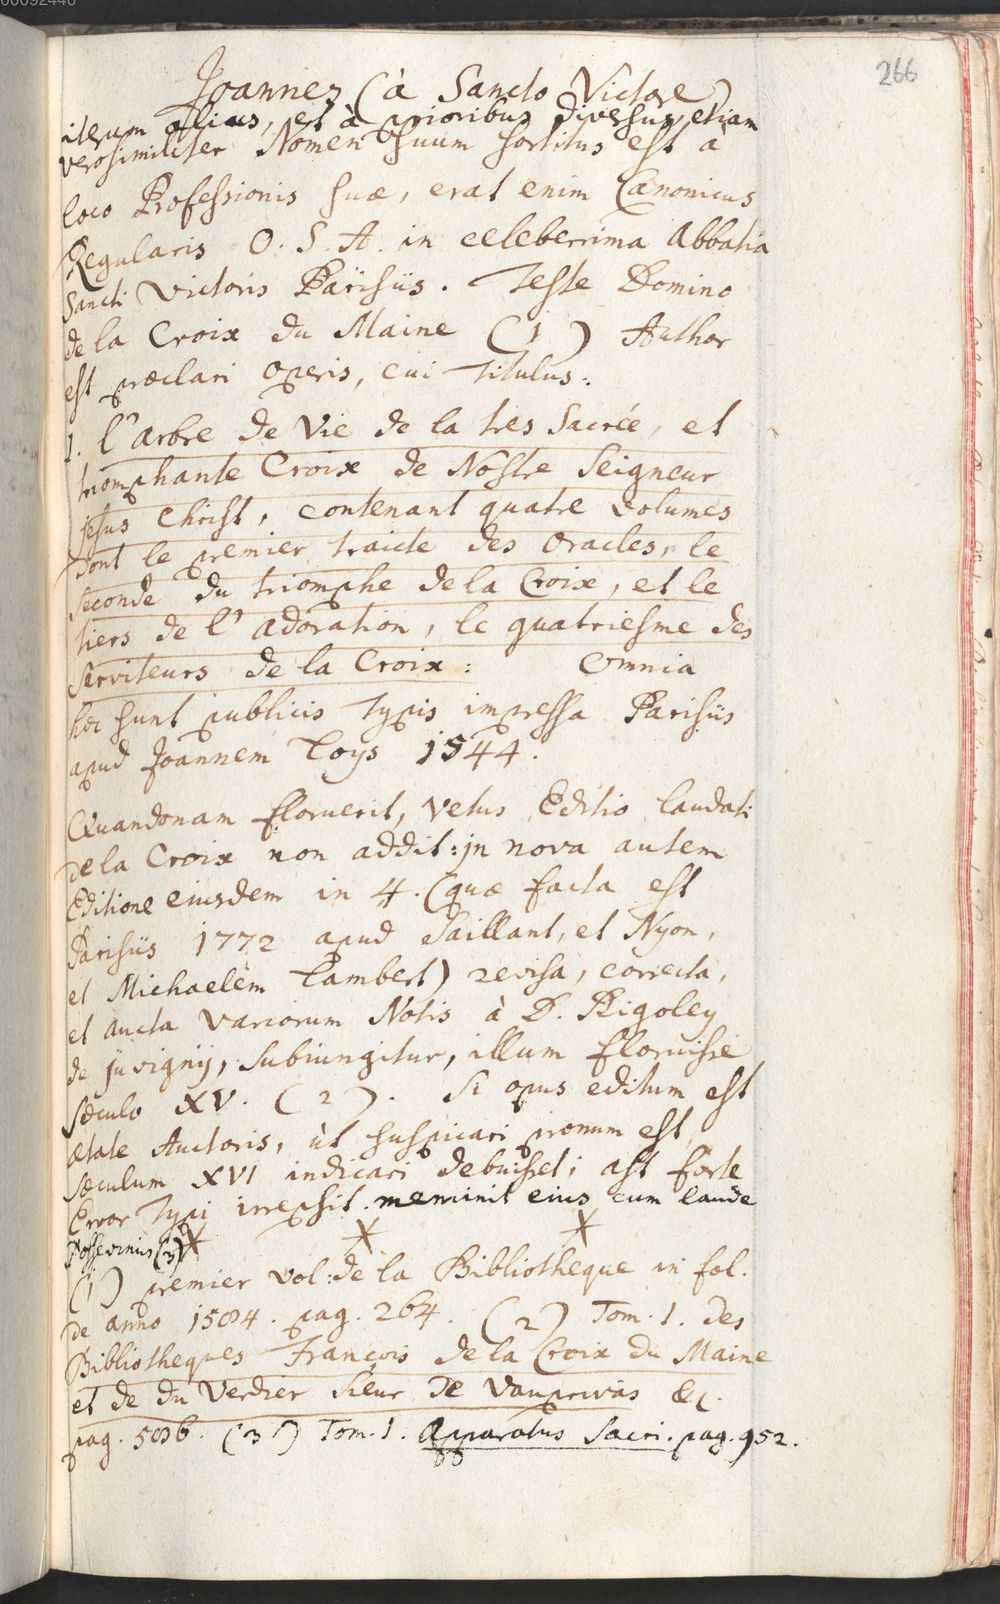 00092440
266
Joannes (à Sancto Victore)
iterum alius, et à prioribus diversus, etiam
verosimiliter Nomen suum sortitus est à
loco Professionis suæ, erat enim Canonicus
Regularis O. S. A. in celeberrima Abbatia
Sancti Victoris Parisiis. Teste Domino
de la Croix du Maine (1) Author
est præclari operis, cui Titulus:
1. l'arbre de Vie de la tres Sacrée, et
triomphante Croix de Nostre Seigneur
jesus Christ, contenant quatre volumes
dont le premier traicte des Oracles, le
seconde du triomphe de la Croix, et le
tiers de l'adoration, le quatriesme des
serviteurs de la Croix: Omnia
hæc sunt publicis Typis impressa Parisiis
apud Joannem Loys 1544.
Quandonam floruerit, vetus Editio laudati
de la Croix non addit: in nova autem
Editione eiusdem in 4. (quæ facta est
Parisiis 1772 apud Saillant, et Nyon,
et Michaelem Lambert) revisa, correcta,
et aucta variorum Notis à D. Rigoley
de juvignij, subiungitur, illum floruisse
sæculo XV. (2). Si opus editum est
ætate Auctoris, ùt suspicari pronum est,
sæculum XVI indicari debuisset; ast forte
Error Typi irrepsit. meminit eius cum laude
Possevinus (3)
(1) premier vol: de la Bibliotheque in fol.
de anno 1584. pag. 264. (2) Tom. 1. des
Bibliotheques François de la Croix du Maine
et de du Verdier sieur de Vauprivas &c.
pag. 596. (3) Tom. 1. Apparatus Sacri. pag. 952.